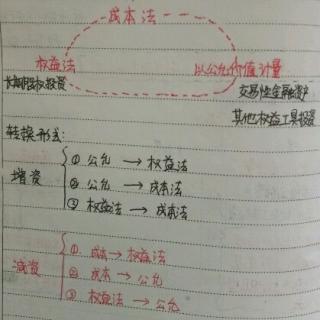 成本法
权益法 以公允价值计量
长期股权投资 交易性金融资产
其他权益工具投资
转换形式:
增资
① 公允 → 权益法
② 公允 → 成本法
③ 权益法 → 成本法
减资
① 成本 → 权益法
② 成本 → 公允
③ 权益法 → 公允